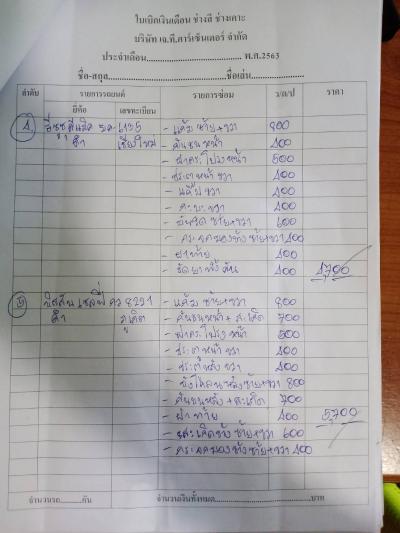 ใบเบิกเงินเดือน ช่างสี ช่างเคาะ
บริษัท เจ.ที.คาร์เซ็นเตอร์ จำกัด
ประจำเดือน.................................... พ.ศ.2563
ชื่อ-สกุล....................................ชื่อเล่น....................
ลำดับ รายการรถยนต์ รายการซ่อม ร/ถ/ป ราคา
ยี่ห้อ เลขทะเบียน
อีซูซุ 6135 - แก้มซ้าย+ขวา 800
ดำ เชียงใหม่ - กันชนหน้า 400
- ฝากระโปรงหน้า 500
- ประตูหน้าขวา 400
- แค๊ปขวา 400
- กะบะขวา 400
- บันไดซ้าย+ขวา 600
- กระจกมองข้างซ้าย+ขวา 400
- ฝาท้าย 400
- ขัดยาทั้งคัน 400 4,700
นิสสัน 8221 - แก้มซ้าย+ขวา 800
ดำ ภูเก็ต - กันชนหน้า + สเกิ๊ต 700
- ฝากระโปรงหน้า 500
- ประตูหน้าขวา 400
- ประตูหลังขวา 400
- บังโคลนหลังซ้าย+ขวา 800
- กันชนหลัง + สเกิ๊ต 700
- ฝาท้าย 400 5,700
- สเกิ๊ตข้างซ้าย+ขวา 600
- กระจกมองข้างซ้าย+ขวา 400
จำนวนรถ........คัน จำนวนเงินทั้งหมด....................................บาท